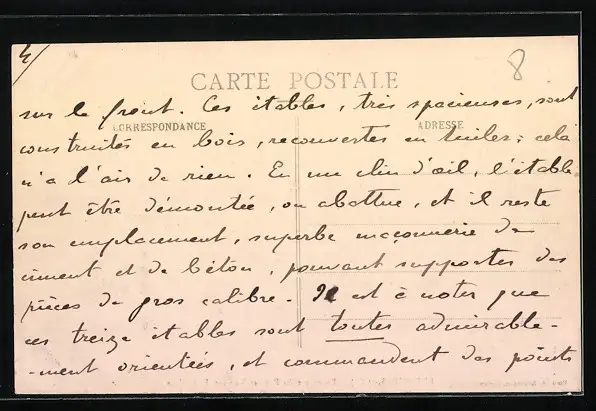 4/
8
CARTE POSTALE
CORRESPONDANCE
ADRESSE
sur le front. Ces étables, très spacieuses, sont
construites en bois, recouvertes en tuiles; cela
n'a l'air de rien. En un clin d'œil, l'étable
peut être démontée, ou abattue, et il reste
son emplacement, superbe maçonnerie de
ciment et de béton, pouvant supporter des
pièces de gros calibre. Il est à noter que
ces treize étables sont toutes admirable-
-ment orientées, et commandent des points